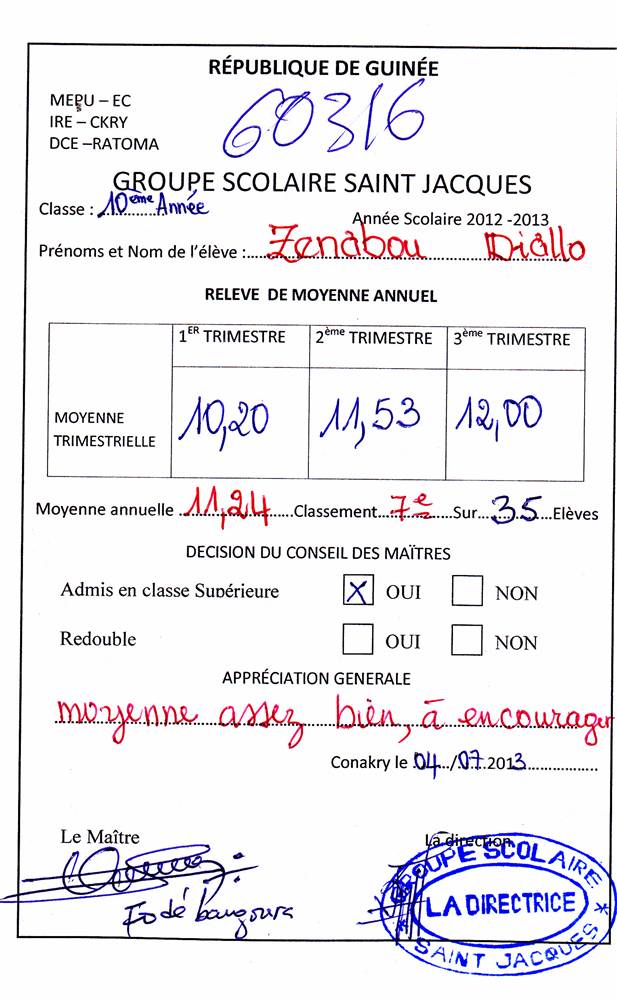 RÉPUBLIQUE DE GUINÉE
MEPU – EC
IRE – CKRY
DCE –RATOMA
60316
GROUPE SCOLAIRE SAINT JACQUES
Classe : 10ème Année
Année Scolaire 2012 -2013
Prénoms et Nom de l'élève : Zenabou Diallo
RELEVE DE MOYENNE ANNUEL
1ER TRIMESTRE 2ème TRIMESTRE 3ème TRIMESTRE
MOYENNE TRIMESTRIELLE 10,20 11,53 12,00
Moyenne annuelle 11,24 Classement 7e Sur 35 Elèves
DECISION DU CONSEIL DES MAÏTRES
Admis en classe Supérieure X OUI NON
Redouble OUI NON
APPRÉCIATION GENERALE
moyenne assez bien, à encourager
Conakry le 04/07.2013
Le Maître
La direction
Fodé bangoura
GROUPE SCOLAIRE
LA DIRECTRICE
SAINT JACQUES